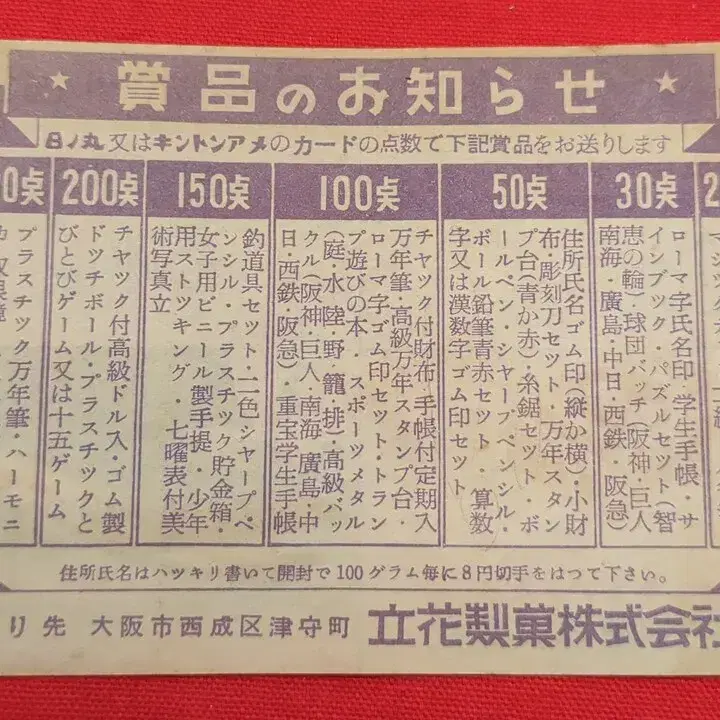 ★ 賞品のお知らせ ★
日ノ丸又はキントンアメのカードの点数で下記賞品をお送りします
30点
ローマ字氏名印・学生手帳・サ
インブック・パズルセット(智
恵の輪)・球団バッチ(阪神・巨人
南海・廣島・中日・西鉄・阪急)
50点
住所氏名ゴム印(縦か横)・小財
布・彫刻刀セット・万年スタン
プ台(青か赤)・糸鋸セット・ボ
ールペン・シャープペンシル・
ボール鉛筆青赤セット・算数
字又は漢数字ゴム印セット
100点
チヤツク付財布・手帳付定期入
万年筆・高級万年スタンプ台・
ローマ字ゴム印セット・トラン
プ遊びの本・スポーツメタル
(庭・水・陸・野・籠・排)・高級バッ
クル(阪神・巨人・南海・廣島・中
日・西鉄・阪急)・重宝学生手帳
150点
釣道具セット・二色シャープペ
ンシル・プラスチック貯金箱・
女子用ビニール製手提・少年
用ストツキング・七曜表付美
術写真立
200点
チヤツク付高級ドル入・ゴム製
ドツチボール・プラスチックと
びとびゲーム又は十五ゲーム
0点
プラスチック万年筆・ハーモニ
住所氏名はハツキリ書いて開封で100グラム毎に8円切手をはつて下さい。
り先 大阪市西成区津守町 立花製菓株式会社